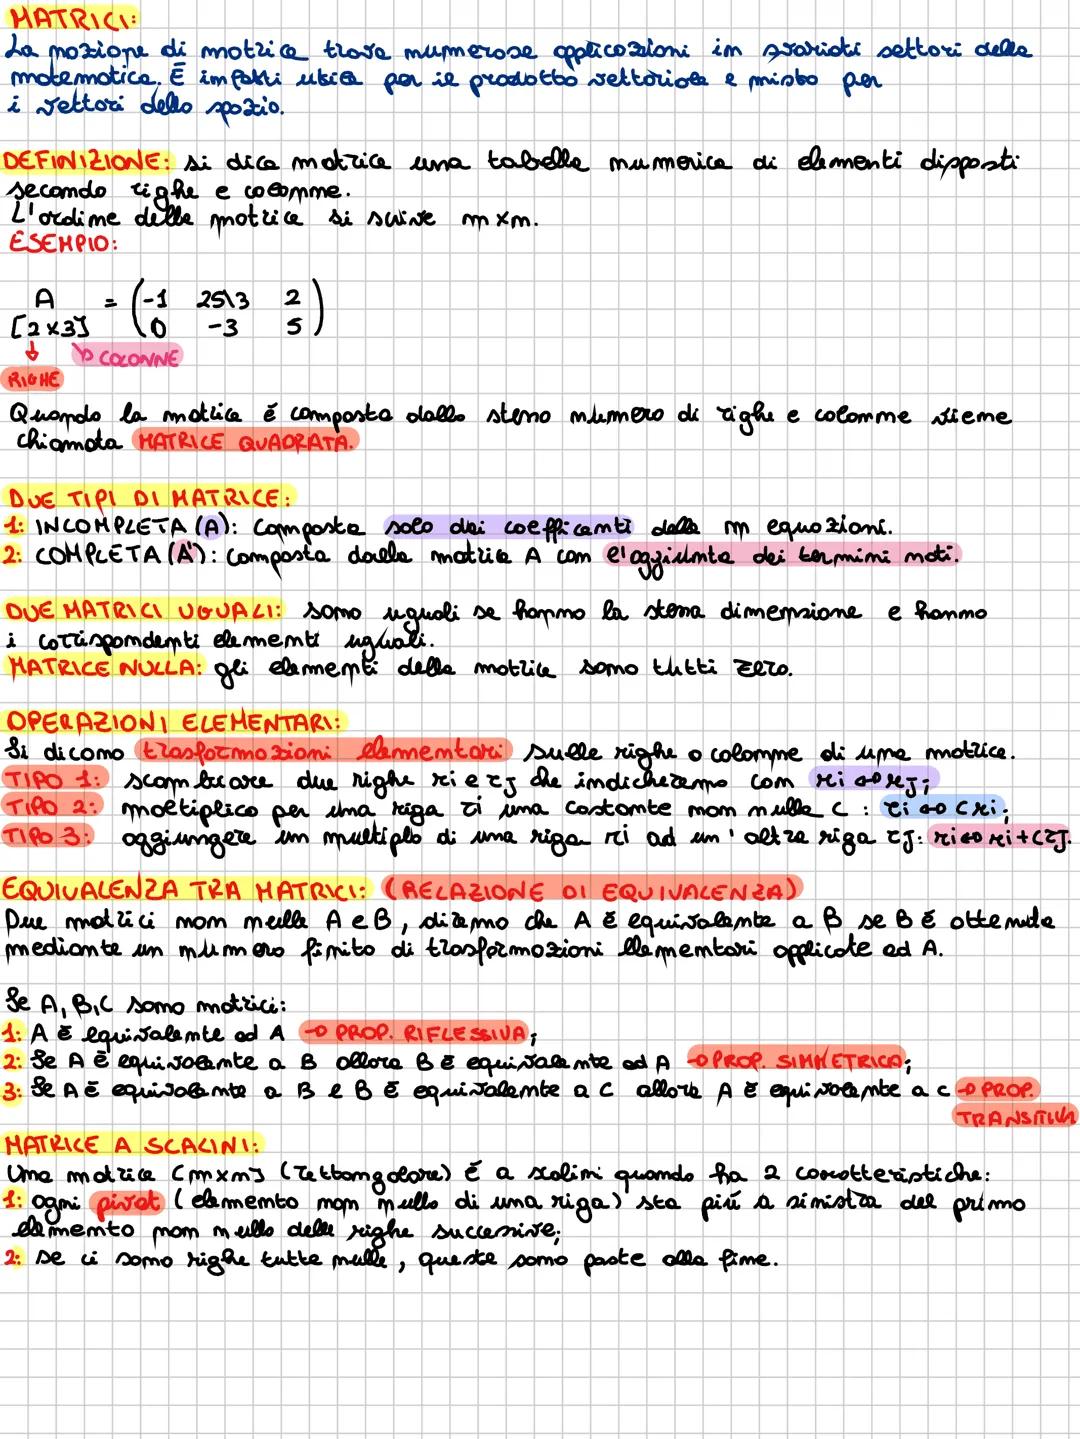 MATRICI:
La nozione di matrice trova numerose applicazioni in svariati settori della
matematica. È infatti utile per il prodotto vettoriale e misto per
i vettori dello spazio.
DEFINIZIONE: si dice matrice una tabella numerica di elementi disposti
secondo righe e colonne.
L'ordine della matrice si scrive m x n.
ESEMPIO:
A = (-1 25\3 2)
[2 x 3] (0 -3 5)
COLONNE
RIGHE
Quando la matrice é composta dallo stesso numero di righe e colonne viene
chiamata MATRICE QUADRATA.
DUE TIPI DI MATRICE:
1: INCOMPLETA (A): Composta solo dai coefficenti delle m equazioni.
2: COMPLETA (A'): Composta dalla matrice A con l'aggiunta dei termini noti.
DUE MATRICI UGUALI: sono uguali se hanno la stessa dimensione e hanno
i corrispondenti elementi uguali.
MATRICE NULLA: gli elementi della matrice sono tutti zero.
OPERAZIONI ELEMENTARI:
Si dicono trasformazioni elementari sulle righe o colonne di una matrice.
TIPO 1: scambiare due righe ri e rJ che indicheremo con ri ↔ rJ;
TIPO 2: moltiplico per una riga ri una costante non nulla c : ri ↔ cri;
TIPO 3: aggiungere un multiplo di una riga ri ad un' altra riga rJ: ri ↔ ri + crJ.
EQUIVALENZA TRA MATRICI: (RELAZIONE DI EQUIVALENZA)
Due matrici non nulle A e B, diremo che A è equivalente a B se B é ottenuta
mediante un numero finito di trasformazioni elementari applicate ad A.
Se A, B, C sono matrici:
1: A è equivalente ad A → PROP. RIFLESSIVA;
2: Se A è equivalente a B allora B è equivalente ad A → PROP. SIMMETRICA;
3: Se A è equivalente a B e B è equivalente a C allora A è equivalente a C → PROP.
TRANSITIVA
MATRICE A SCALINI:
Una matrice [m x n] (rettangolare) é a scalini quando ha 2 caratteristiche:
1: ogni pivot (elemento non nullo di una riga) sta piú a sinistra del primo
elemento non nullo delle righe successive;
2: se ci sono righe tutte nulle, queste sono poste alla fine.